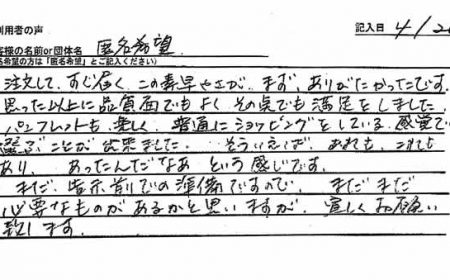 利用者の声
記入日 4/2
客様の名前or団体名 匿名希望
名希望の方は「匿名希望」とご記入ください)
注文して、すぐ届く この素早やさが、まず、ありがたかったです。
思った以上に品質面でもよく その点でも満足をしました。
パンフレットも 楽しく、普通にショッピングをしている 感覚で
選ぶことが出来ました。 そういえば、あれも、これも
あり、あったんだなあ という感じです。
まだ、告示前での準備ですので、まだまだ
必要なものがあるかと思いますが、宜しくお願い
致します。